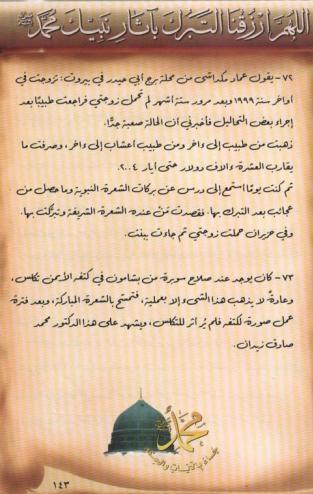 اللهم ارزقنا التبرك بآثار نبيك محمد ﷺ
٧٢- يقول عماد مكداشي من محلة برج أبي حيدر في بيروت: تزوجت في
أواخر سنة ١٩٩٩ وبعد مرور ستة أشهر لم تحمل زوجتي فراجعت طبيبًا بعد
إجراء بعض التحاليل فأخبرني أن الحالة صعبة جدًا.
ذهبت من طبيب إلى ءاخر ومن طبيب أعشاب إلى ءاخر، وصرفت ما
يقارب العشرة ءالاف دولار حتى أيار ٢٠٠٤.
ثم كنت يومًا أستمع إلى درس عن بركات الشعرة النبوية وما حصل من
عجائب بعد التبرك بها. فقصدت مَن عنده الشعرة الشريفة وتبركت بها.
وفي حزيران حملت زوجتي ثم جاءت ببنت.
٧٣- كان يوجد عند صلاح سوبرة من بشامون في كتفه الأيمن تكلس،
وعادةً لا يذهب هذا الشىء إلا بعملية، فتمسح بالشعرة المباركة، وبعد فترة
عمل صورة لكتفه فلم يُر أثر للتكلس، ويشهد على هذا الدكتور محمد
صادق زيدان.
محمد ﷺ
١٤٣